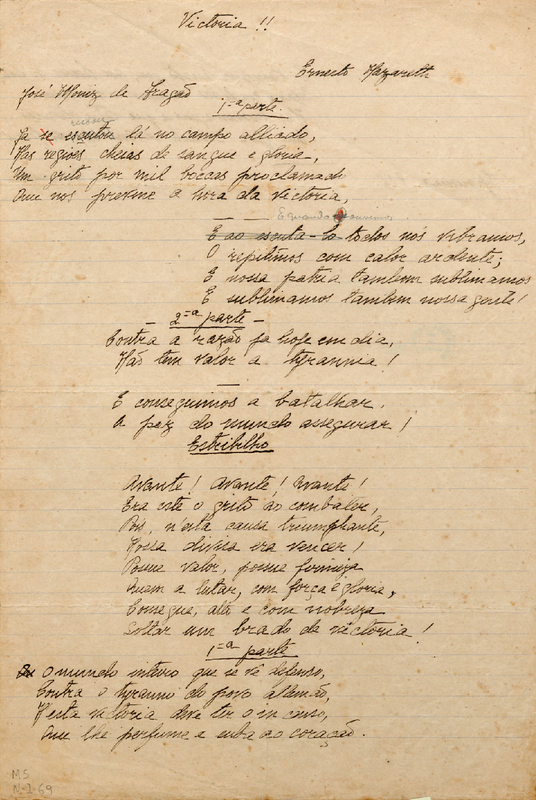 Victoria !!
Ernesto Nazareth
José Moniz de Aragão
1ª parte.
Já se escutou lá no campo alliado,
Nas regiões cheias de sangue e gloria,
Um grito por mil boccas proclamado
Que nos previne a hora da victoria,
E quando o ouvimos
E ao escuta-lo todos nós vibramos,
O repitimos com calor ardente;
E nossa patria tambem sublimamos
E sublimamos tambem nossa gente!
2ª parte
Contra a razão já hoje em dia,
Não tem valor a tyrannia!
E conseguimos a batalhar.
A paz do mundo assegurar!
Estribilho
Avante! Avante! Avante!
Era este o grito ao combater,
Pois, n'esta causa triumphante,
Nossa divisa era vencer!
Possue valor, possue firmeza
Quem a lutar, com força e gloria,
Consegue, alta e com nobreza
Soltar um brado de victoria!
1ª parte
O mundo inteiro que se vê defenso,
Contra o tyranno do povo alemão,
N'esta victoria deve ter o incenso,
Que lhe perfume e suba ao coração.
MS
N-I-69